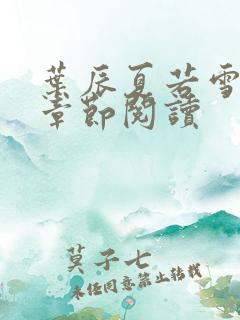 葉辰夏若雪
章節閱讀
莫子七
未经同意禁止转载